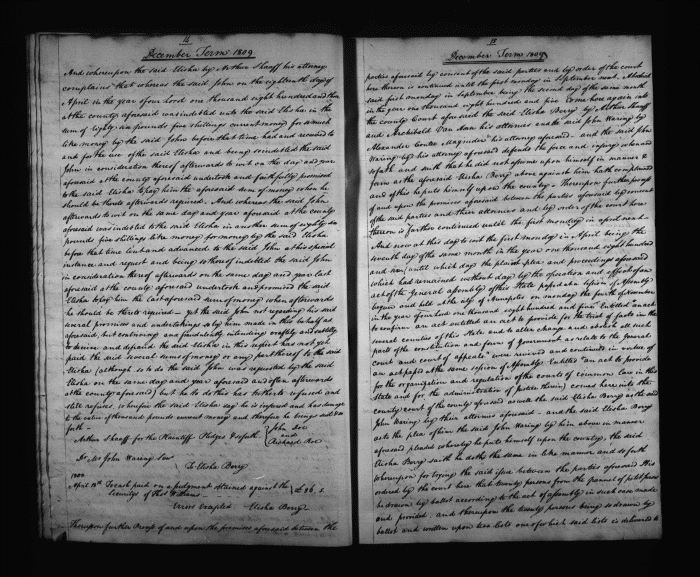 14
December Term 1809
And whereupon the said Elisha by Arthur Shaaff his attorney
complains that whereas the said John on the eighteenth day of
April in the year of our Lord one thousand eight hundred and
at the county aforesaid was indebted unto the said Elisha in the
sum of eighty six pounds five shillings current money for so much
like money by the said John before that time had and received to
and for the use of the said Elisha and being so indebted the said
John in consideration thereof afterwards to wit on the day and year
aforesaid at the county aforesaid undertook and faithfully promised
to the said Elisha to pay him the aforesaid sum of money when he
should be thereto afterwards required. And whereas the said John
afterwards to wit on the same day and year aforesaid at the county
aforesaid was indebted to the said Elisha in another sum of eighty six
pounds five shillings like money for money by the said Elisha
before that time lent and advanced to the said John at his special
instance and request and being so thereof indebted the said John
in consideration thereof afterwards on the same day and year last
aforesaid at the county aforesaid undertook and promised the said
Elisha to pay him the last aforesaid sum of money when afterwards
he should be thereto required — yet the said John not regarding his said
several promises and undertakings so by him made in this behalf as
aforesaid, but contriving and fraudulently intending craftily and subtilly
to deceive and defraud the said Elisha in this respect has not yet
paid the said several sums of money or any part thereof to the said
Elisha (although so to do the said John was requested by the said
Elisha on the same day and year aforesaid and often afterwards
at the county aforesaid) but he to do this has hitherto refused and
still refuses, wherefore the said Elisha say he is injured and has damage
to the value of thousand pounds current money and therefore he brings suit &c
forth —
Arthur Shaaff for the Plaintiff Pledges &c forth John Doe
and
Richard Roe
Dr Mr John Waring Senr
To Elisha Berry
April 18th To cash paid on a judgment obtained against the £86.5.
Errors Excepted Elisha Berry
Thereupon further Process of and upon the premises aforesaid between the
15
December Term 1809
parties aforesaid by consent of the said parties and by order of the court
here thereon is continued until the first monday in September next. At which
said first monday in September being the second day of the same month
in the year one thousand eight hundred and five Come here again into
the County Court aforesaid the said Elisha Berry by Arthur Shaaff
and Archibald Van Horn his attornies and the said John Waring by
Alexander Contee Magruder his attorney aforesaid. and the said John
Waring by his attorney aforesaid defends the force and injury when and
so forth and saith that he did not assume upon himself in manner &
form as the aforesaid Elisha Berry above against him hath complained
and of this he puts himself upon the country. Thereupon further process
of and upon the premises aforesaid between the parties aforesaid by consent
of the said parties and their attornies and by order of the court here
thereon is further continued until the first monday in April next.
And now at this day to wit the first monday in April being the
seventh day of the same month in the year one thousand eight hundred
and until which day the plaint plea and proceedings aforesaid
which had remained without day by the operation and effect of an
act of the General assembly of this State passed at a Session of Assembly
begun and held at the city of Annapolis on monday the fourth of November
in the year of our Lord one thousand eight hundred and five Entitled "an act
to confirm an act entitled an act to provide for the trial of facts in the
several counties of this State and to alter change and abolish all such
parts of the constitution and form of Government as relate to the General
Court and court of appeals" were revived and continued in virtue of
an act passed at the same session of Assembly Entitled "an act to provide
for the organization and regulation of the courts of common Law in this
State and for the administration of justice therein) comes here into the
county court of the county aforesaid as well the said Elisha Berry as the said
John Waring by their attornies aforesaid. and the said Elisha Berry
as to the plea of him the said John Waring by him above in manner
aforesaid pleaded whereof he puts himself upon the country, the said
Elisha Berry saith he doth the same in like manner and so forth
Whereupon for trying the said issue between the parties aforesaid It is
ordered by the court here that twenty persons from the pannel of petit jurors
be drawn by ballot according to the act of assembly in such case made
and provided. and thereupon the twenty persons being so drawn by
ballot and written upon two lists one of which said lists is delivered to